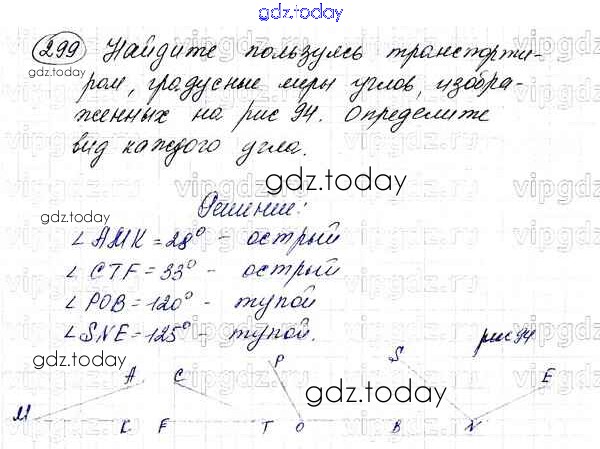 gdz.today
299 Найдите пользуясь транспорти-
gdz.today
ром, градусные меры углов, изобра-
женных на рис 94. Определите
вид каждого угла.
gdz.today
gdz.today
Решение:
∠ AMK = 28° - острый
∠ CTF = 33° - острый
∠ POB = 120° - тупой
∠ SNE = 125° - тупой.
рис 94
gdz.today
P S
A C E
gdz.today
M K F T O B N